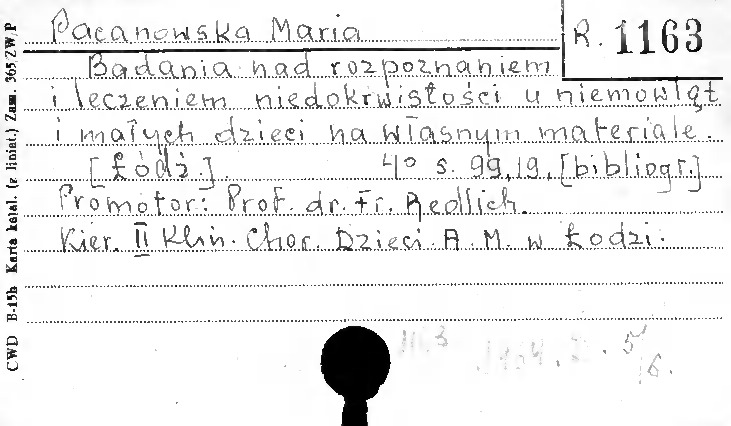 Pacanowska Maria
R. 1163
Badania nad rozpoznaniem
i leczeniem niedokrwistości u niemowląt
i małych dzieci na własnym materiale.
[Łódź.] 4º s. 99,19, [bibliogr.]
Promotor: Prof. dr. Fr. Redlich.
Kier. II Klin. Chor. Dzieci A. M. w Łodzi.
CWD B-15b Karta katal. (z liniat.) Zam. 365/ZW/P